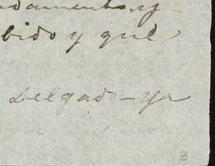 damento, y
bido y que
Delgado - ya
3